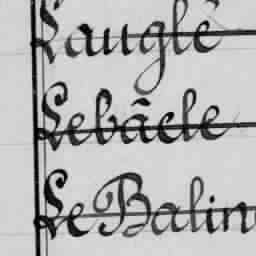 Lauglé
Lebâcle
Le Balin